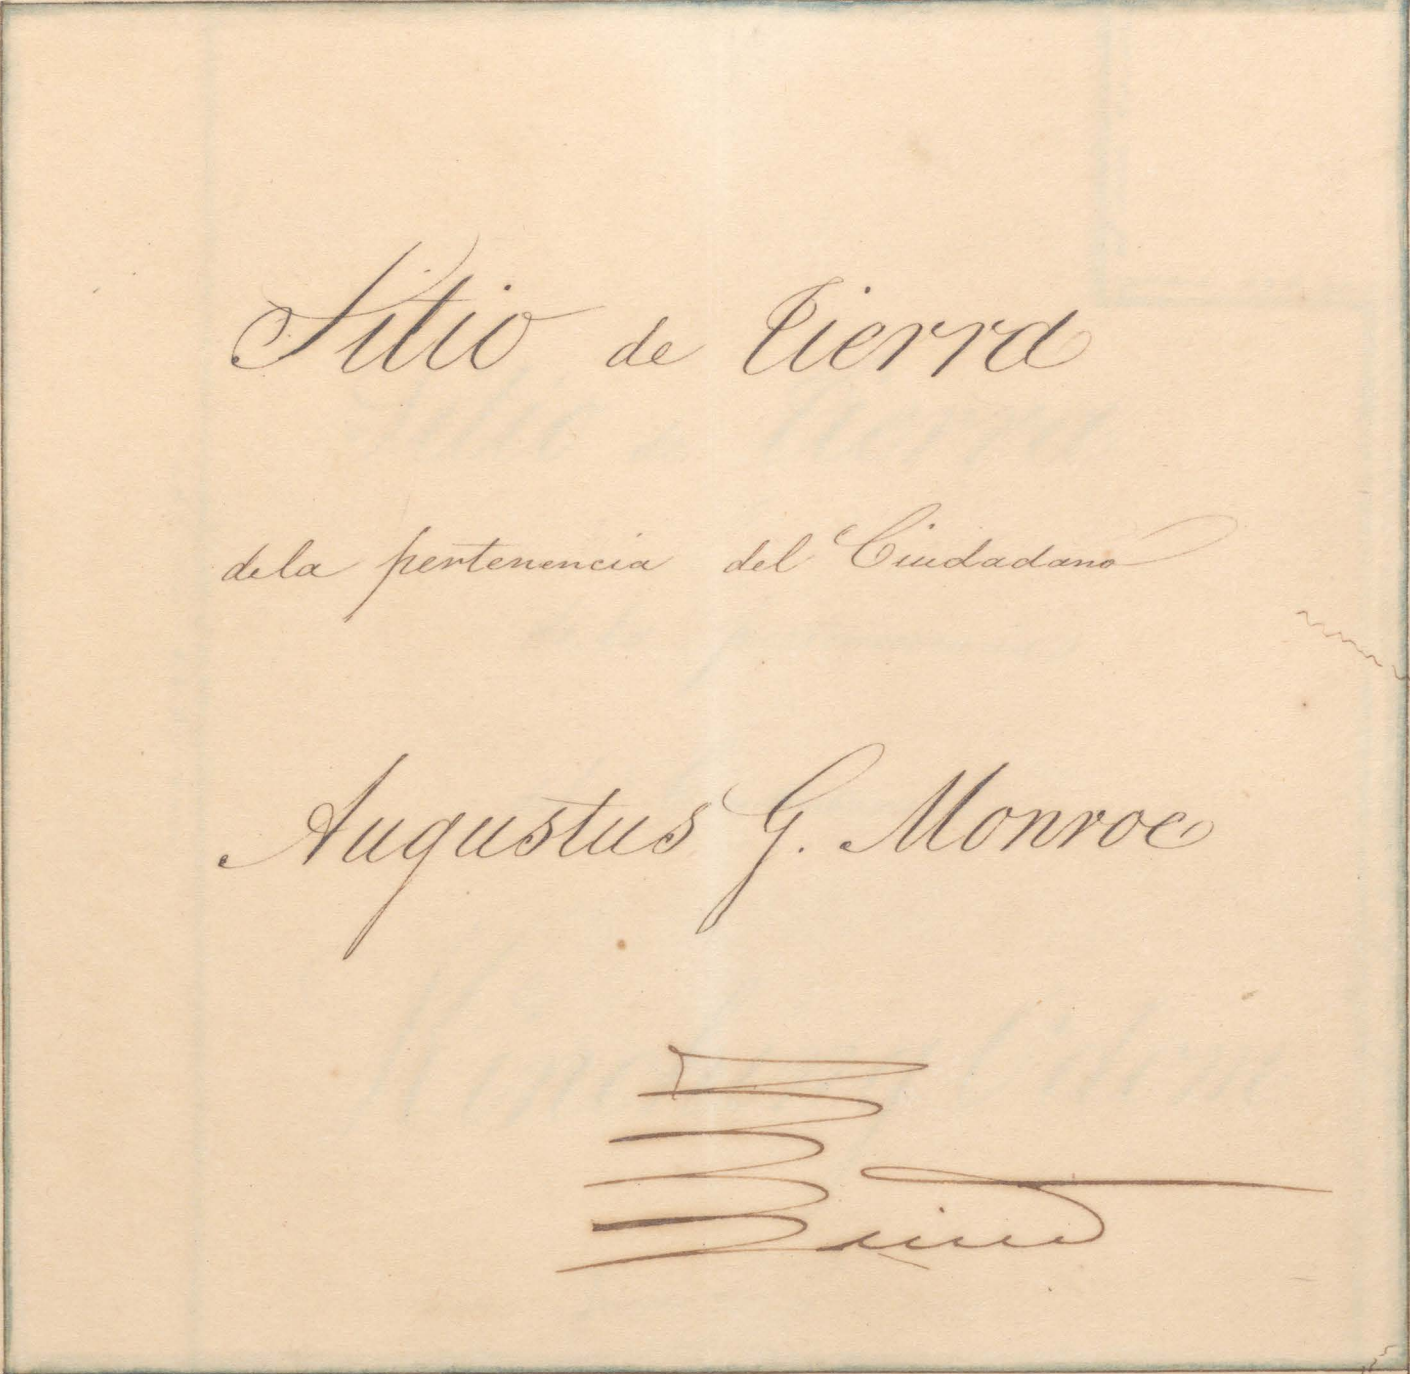 Sitio de Tierra
dela pertenencia del Ciudadano
Augustus G. Monroe